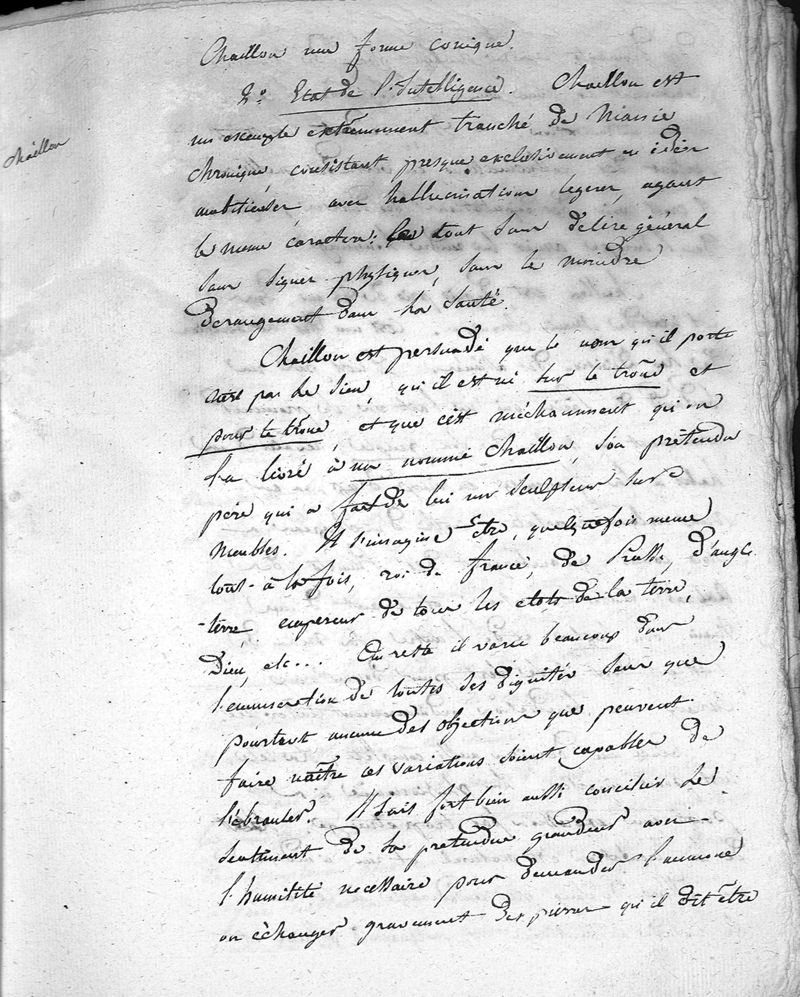 Chaillon
Chaillon une forme conique.
2.° Etat de l'Intelligence. Chaillon est
un exemple extrêmement tranché de Manie
chronique, consistant presque exclusivement en idées
ambitieuses, avec hallucinations legeres, ayant
le meme caractere: tout sans delire général
sans signes physiques, sans le moindre
derangement dans sa santé.
Chaillon est persuadé que le nom qu'il porte
n'est pas le sien, qu'il est né sur le trône et
pour le trône, et que c'est méchamment qu'on
l'a livré à un nommé Chaillon, son prétendu
père qui a fait de lui un sculpteur sur
meubles. Il s'imagine être, quelquefois meme
tout-à-la fois, roi de france, de Prusse, d'angle
-terre, empereur de tous les etats de la terre,
Dieu, etc... Au reste il varie beaucoup dans
l'enumeration de toutes ses dignités sans que
pourtant aucune des objections que peuvent
faire naître ces variations soient capables de
l'ébranler. Il sait fort bien aussi concilier le
sentiment de sa pretendue grandeur avec
l'humilité necessaire pour demander l'aumone
ou échanger gravement des pierres qu'il dit être